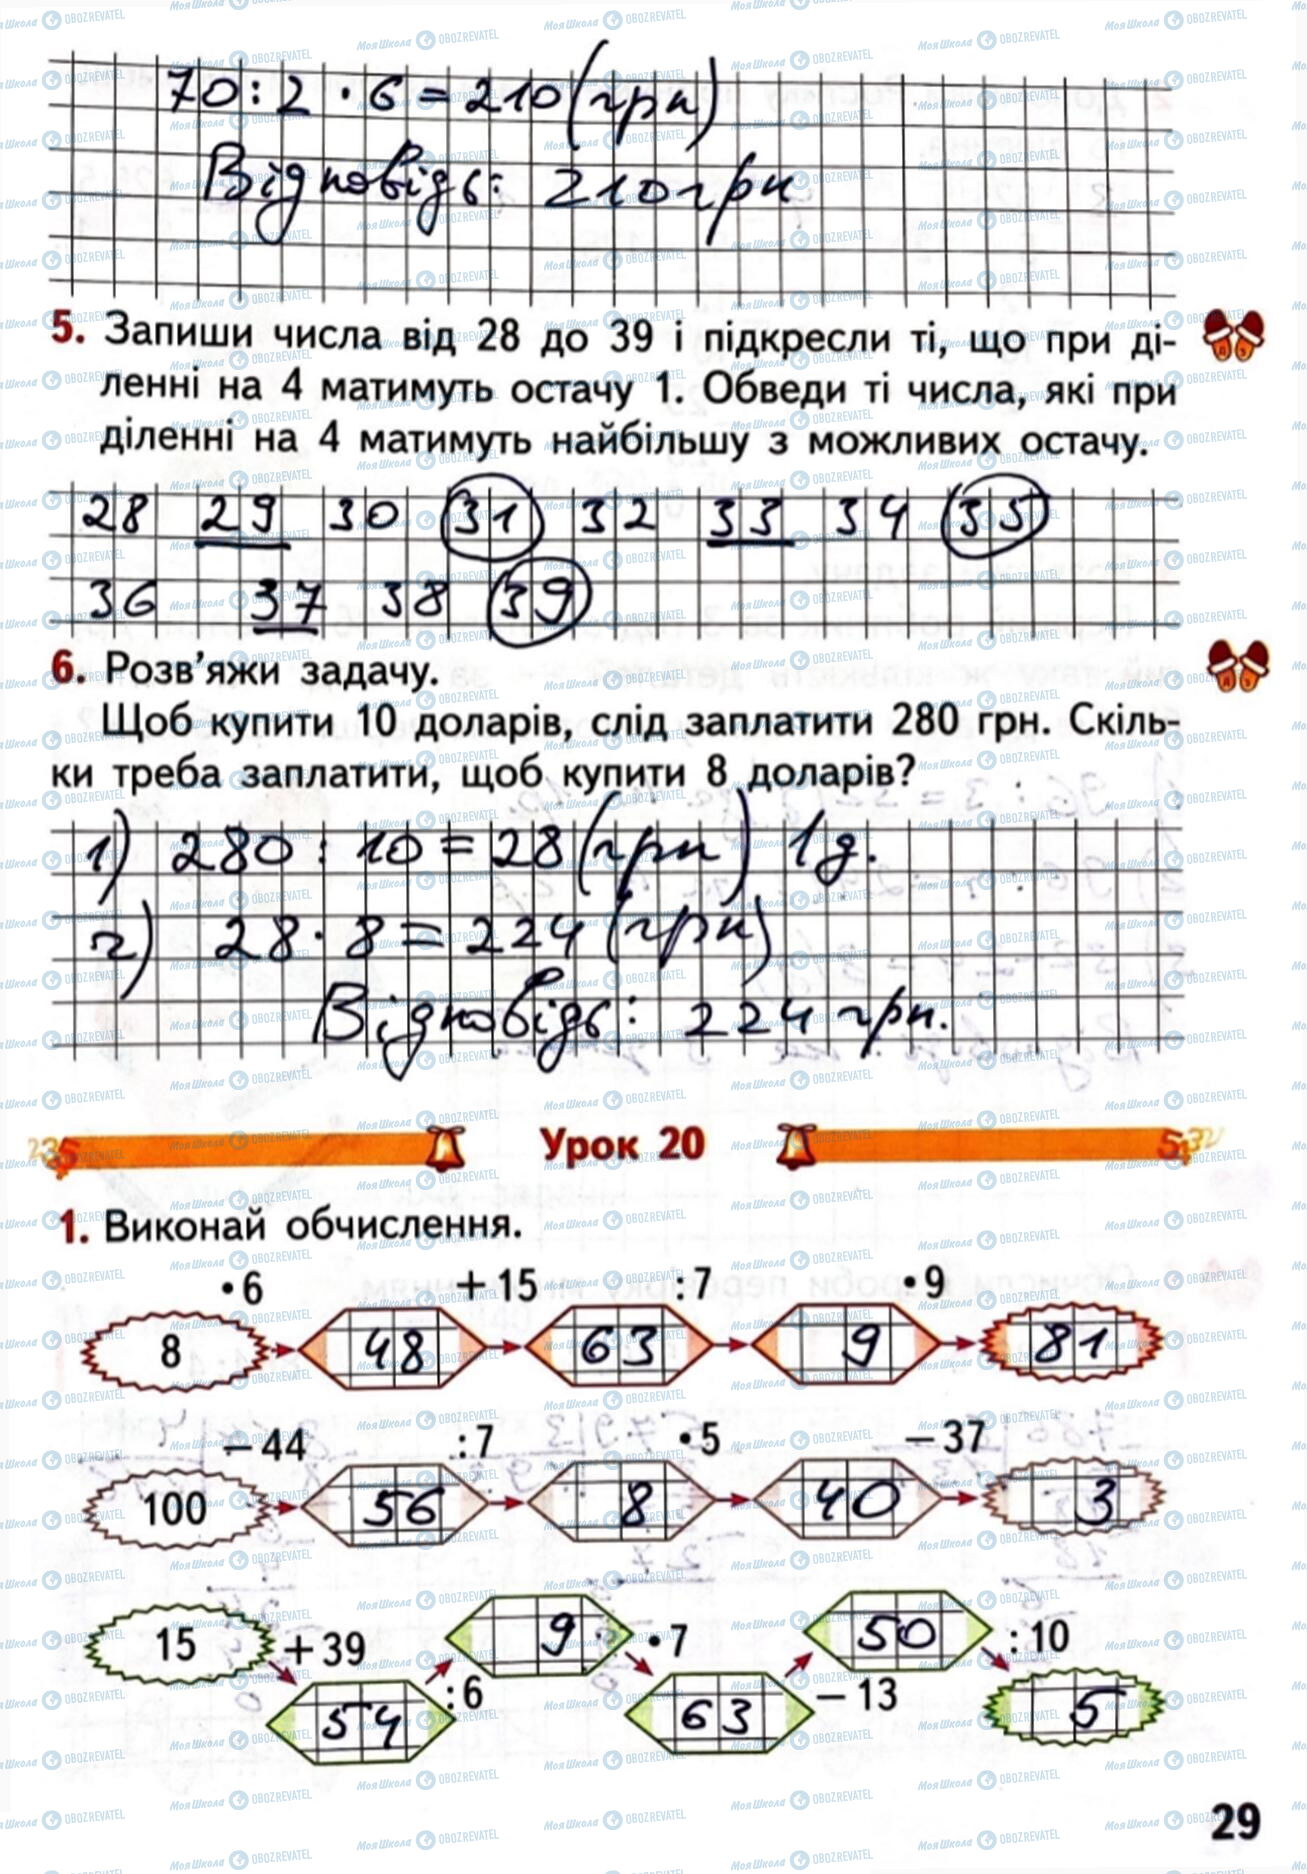 70 : 2 · 6 = 210 (грн)
Відповідь: 210 грн
5. Запиши числа від 28 до 39 і підкресли ті, що при ді-
ленні на 4 матимуть остачу 1. Обведи ті числа, які при
діленні на 4 матимуть найбільшу з можливих остачу.
28 29 30 31 32 33 34 35
36 37 38 39
6. Розв'яжи задачу.
Щоб купити 10 доларів, слід заплатити 280 грн. Скіль-
ки треба заплатити, щоб купити 8 доларів?
1) 280 : 10 = 28 (грн) 1 д.
2) 28 · 8 = 224 (грн)
Відповідь: 224 грн.
Урок 20
1. Виконай обчислення.
· 6 + 15 : 7 · 9
8 48 63 9 81
– 44 : 7 · 5 – 37
100 56 8 40 3
15 + 39 9 · 7 50 : 10
54 : 6 63 – 13 5
29
МояШкола OBOZREVATEL